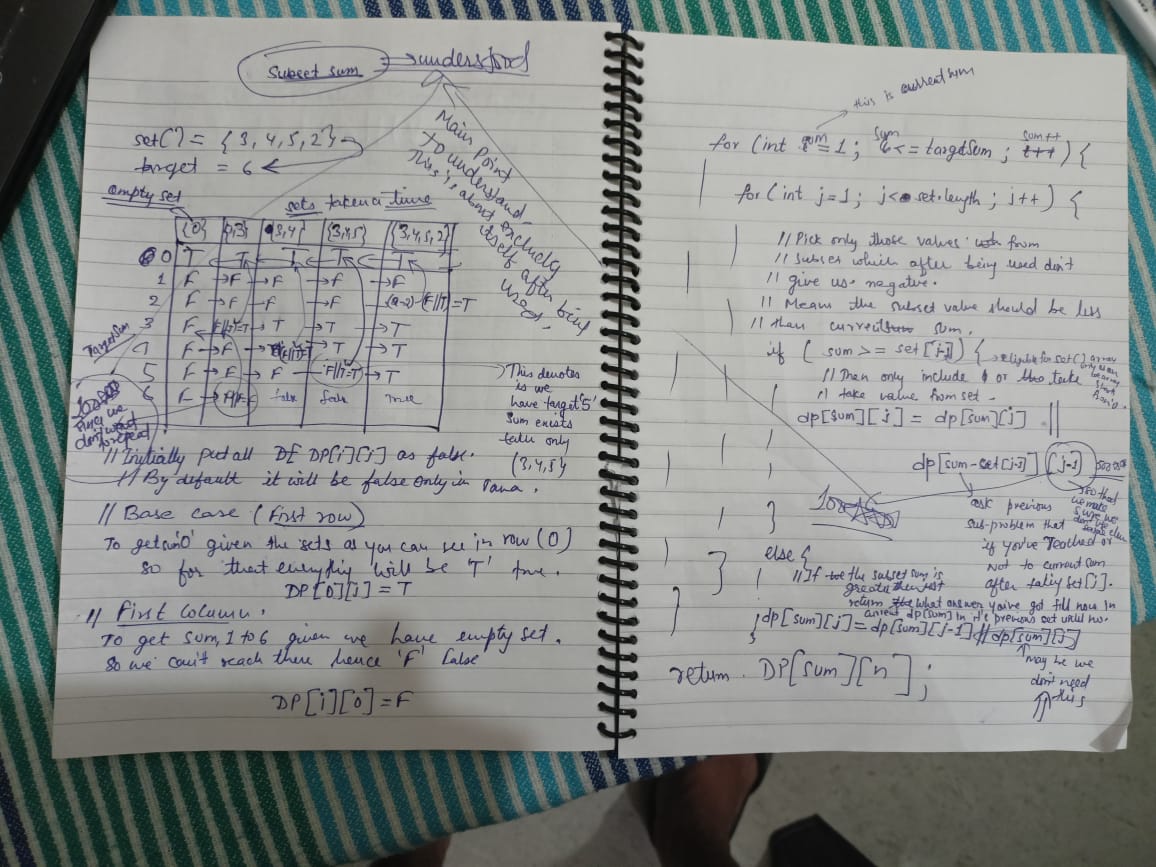 Subset sum → understood
Main Point
to understand.
This is about exclude
itself after being
used.
set[] = { 3, 4, 5, 2 }
target = 6
empty set
sets taken a time
{0} {0,3} {3,4} {3,4,5} {3,4,5,2}
0 T T T T T
1 F →F →F →F →F
2 F →F →F →F F||T = T
3 F F||T=T → T → T → T
4 F → F → F||T=T → T → T
5 F → F → F F||T=T → T
6 F → F||F=F false false true
Target Sum
since we
don't want
to repeat
→ This denotes
is we
have target '5'
sum exists
(3,4,5)
// Initially put all OF DP[i][j] as false.
// By default it will be false only in Java.
// Base case (First row)
To get sum '0' given the sets as you can see in row (0)
so for that everything will be 'T' true.
DP[0][j] = T
// First Column.
To get sum, 1 to 6 given we have empty set.
So we can't reach there hence 'F' false
DP[i][0] = F
this is current sum
for (int sum = 1; sum <= targetSum ; sum++) {
for (int j=1; j<= set.length ; j++) {
// Pick only those values from
// subset which after being used don't
// give us negative.
// Means the subset value should be less
// than current sum.
if ( sum >= set[j-1]) {
// Then only include or take
// take value from set.
dp[sum][j] = dp[sum][j] ||
dp[sum-set[j-1]] [j-1]
ask previous
sub-problem that
if you've reached or
not to current sum
after taking set[j].
so that
we make
sure we
}
else {
// If the subset sum is
greater then just
return what answer you've got till now in
current dp[sum] in it's previous set until now.
dp[sum][j] = dp[sum][j-1] || dp[sum][j]
}
}
}
may be we
don't need
this
return DP[sum][n];